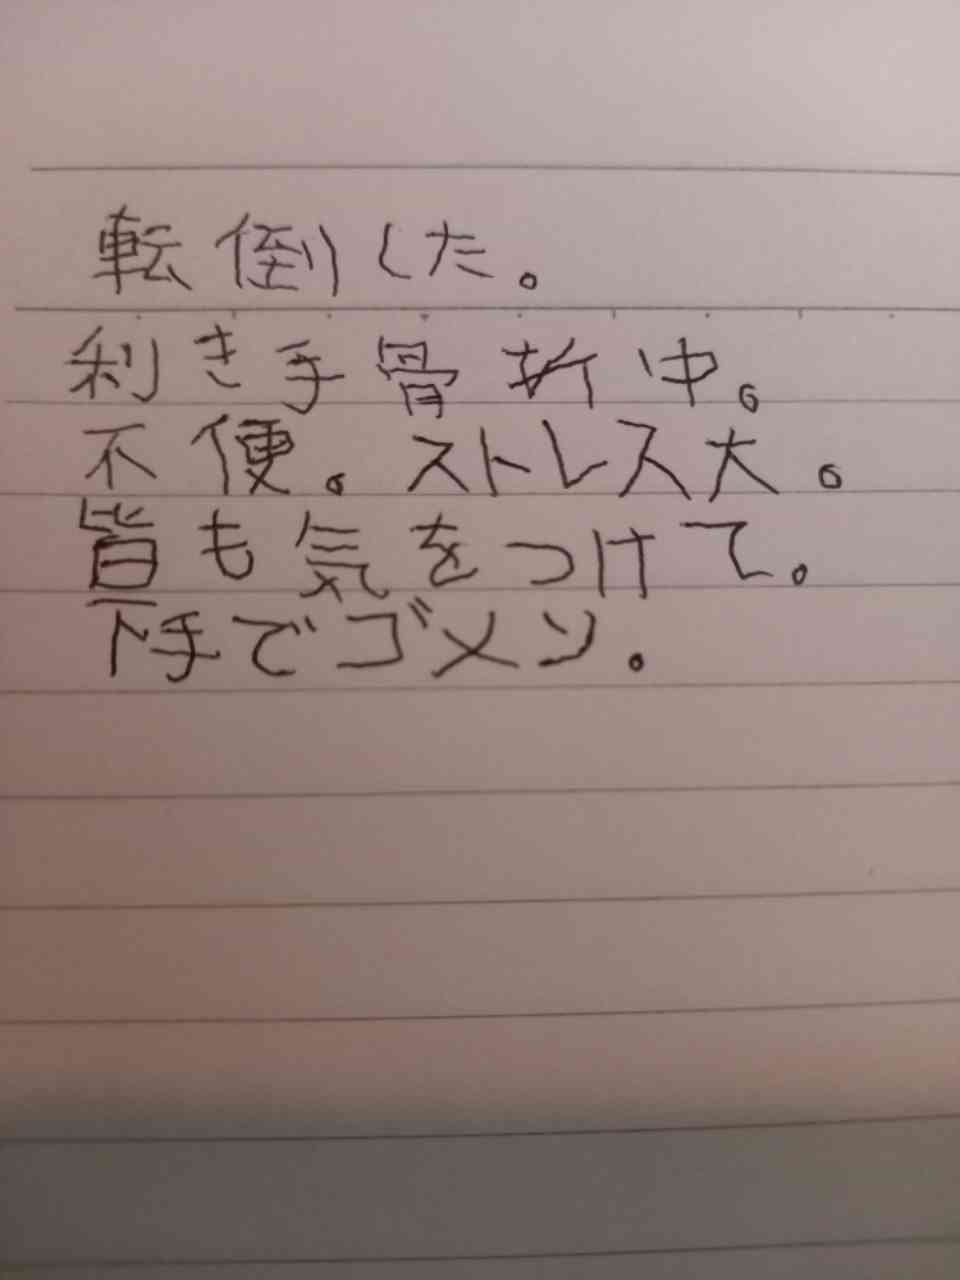 転倒した。
利き手骨折中。
不便。ストレス大。
皆も気をつけて。
下手でゴメン。